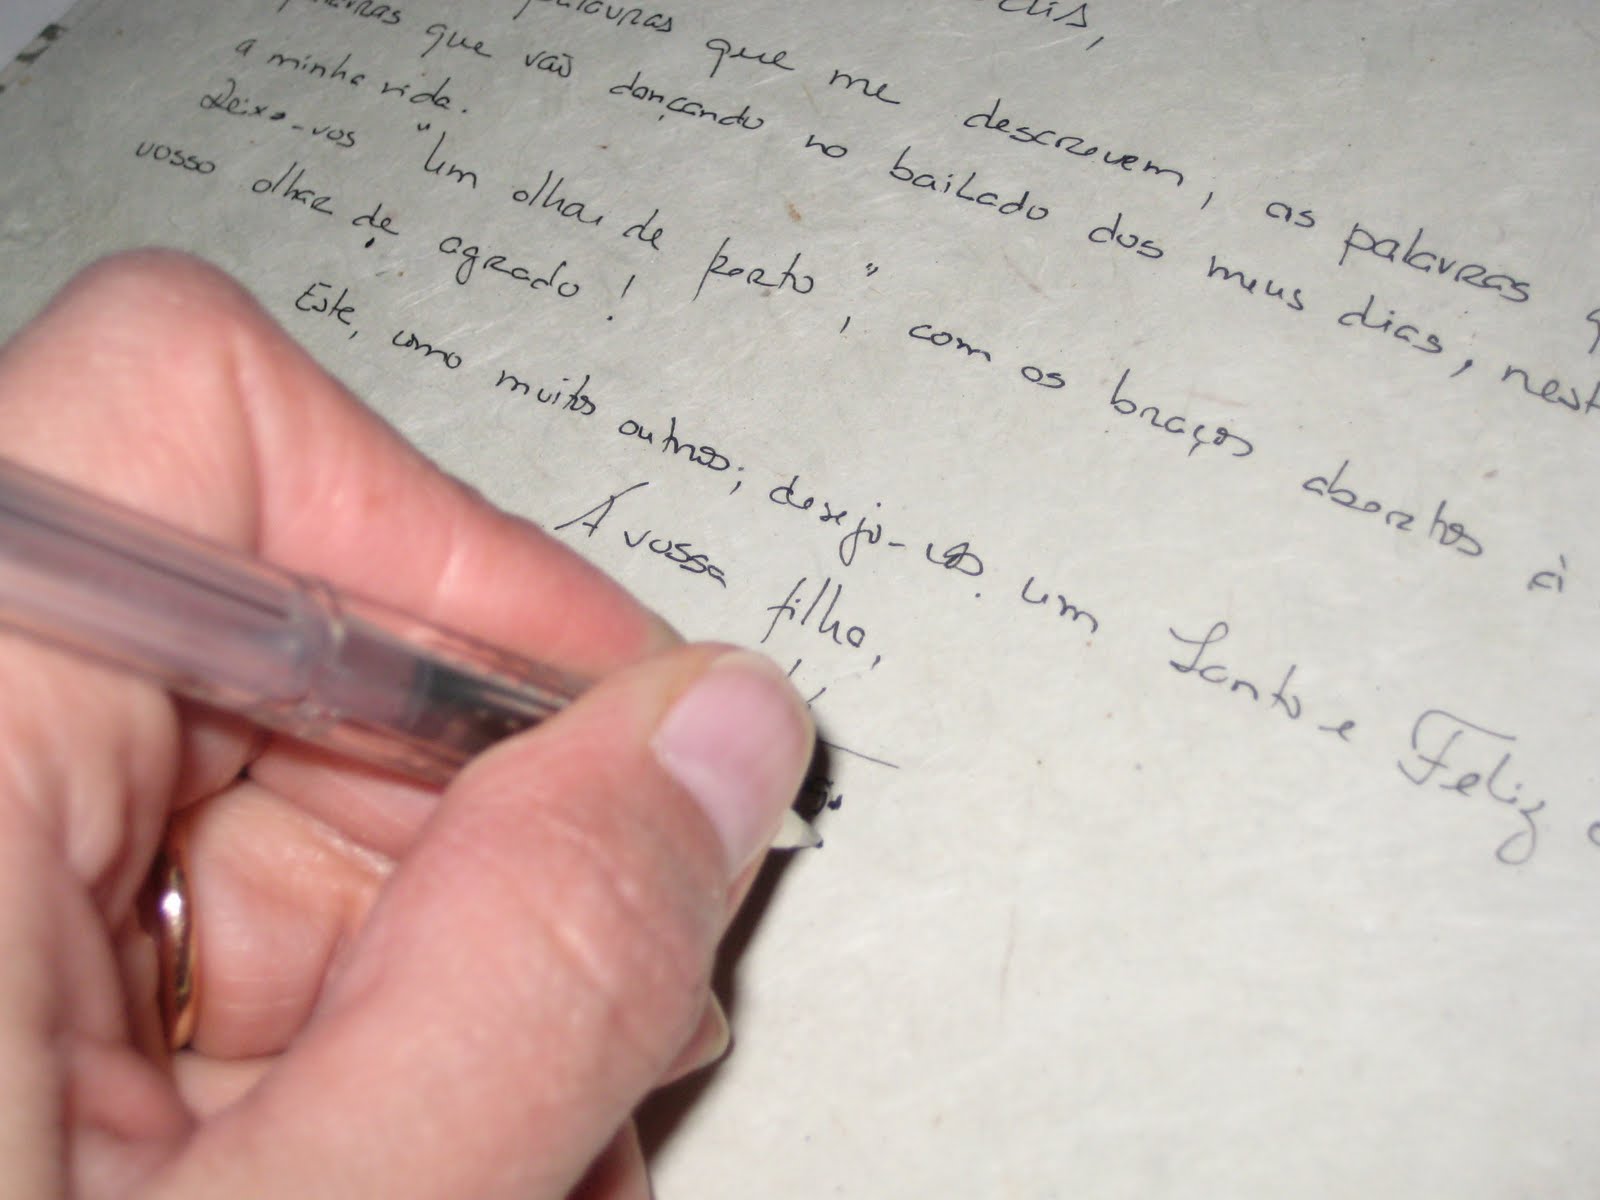 palavras que me descrevem, as palavras
que vão dançando no bailado dos meus dias,
a minha vida.
Deixo-vos "Um olhar de perto", com os braços abertos à
vosso olhar de agrado!
Este, como muitos outros; desejo-vos um Santo e Feliz
A vossa filha,